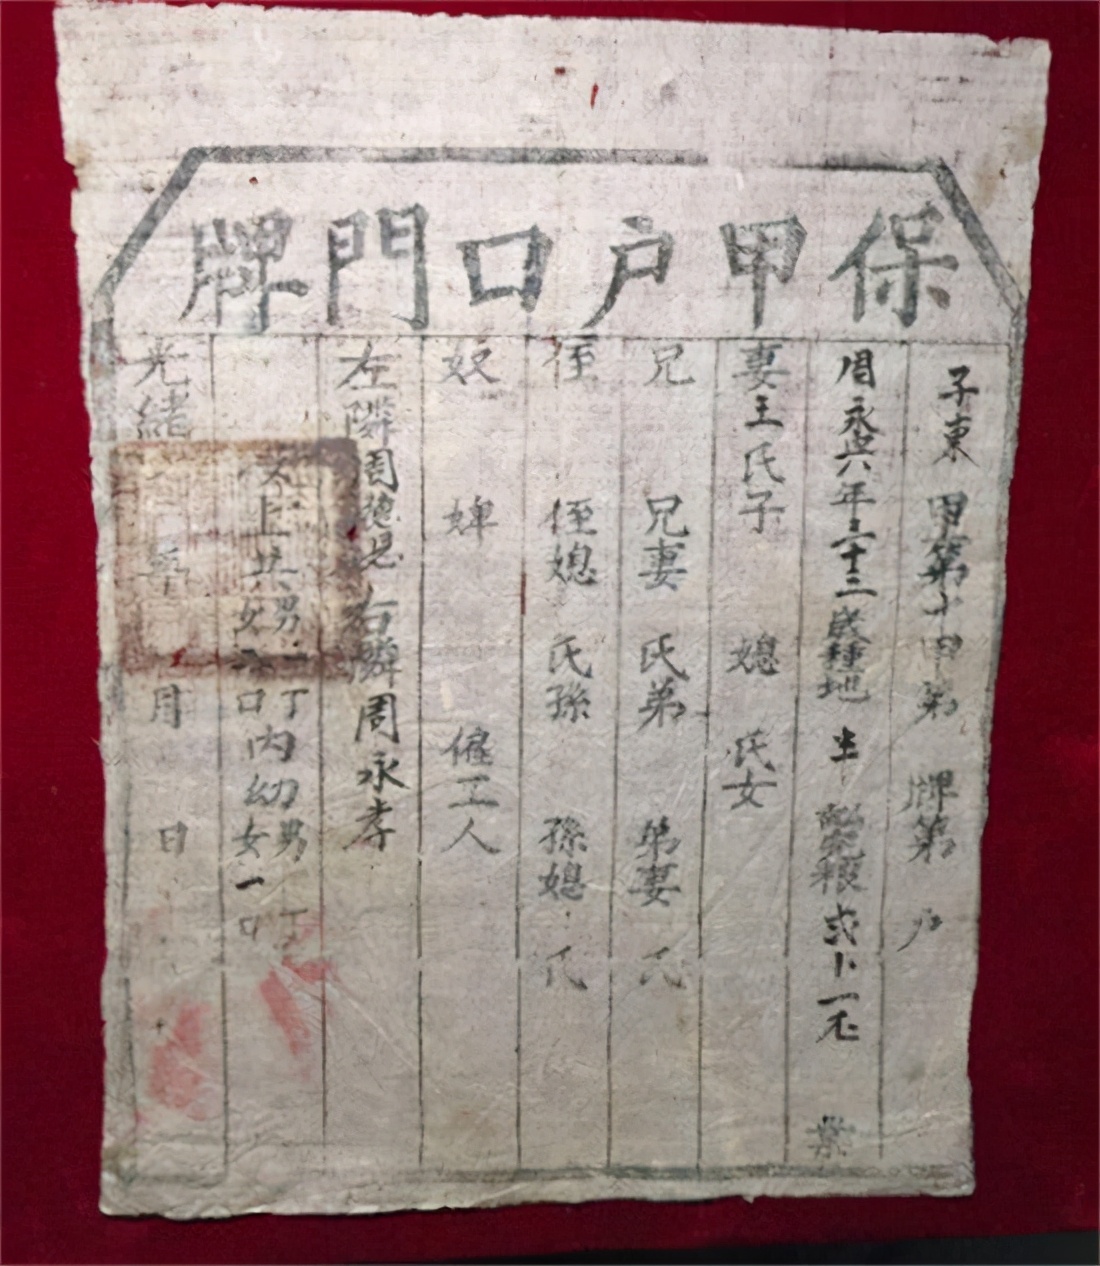 保甲戶口門牌
子東 甲第十甲第 牌第 戶
周永 年三十三歲種地 生 完粮 一 業
妻王氏子 媳 氏女
兄 兄妻 氏弟 弟妻 氏
侄 侄媳 氏孫 孫媳 氏
奴 婢 僱工人
左隣周 右隣周永孝
以上共男 丁女 口內幼男 丁女一口
光緒 年 月 日